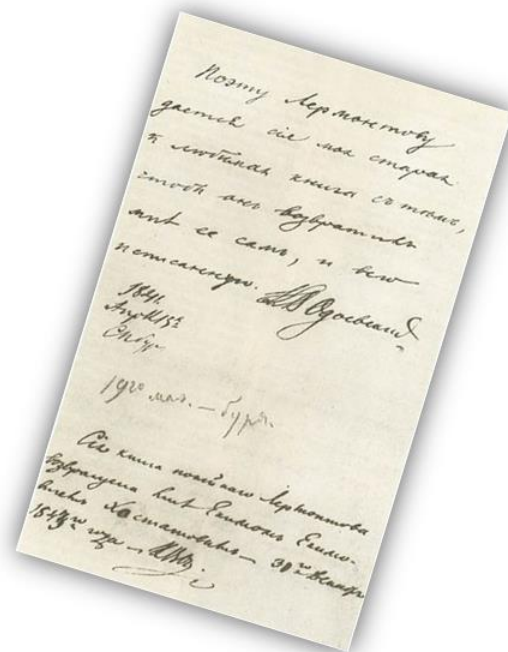 Поэту Лермонтову
дается сія моя старая
и любимая книга съ тѣмъ,
чтобы онъ возвратилъ
мнѣ ее самъ, и всю
исписанную.
К. В. Одоевскій
1841.
Апреля 13е
СПбург
19го мая. — буря.
Сія книга покойнаго Лермонтова
возвращена мнѣ Екимомъ Екимо-
вичемъ Хастатовымъ — 30го
1843го года —